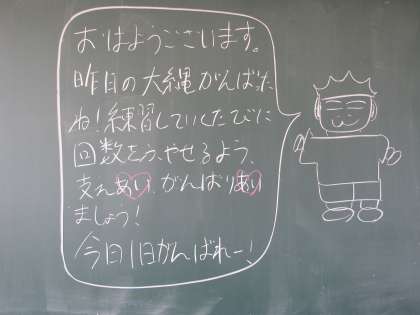 おはようございます。
昨日の大縄がんばった
ね！練習していくたびに
回数をふやせるよう、
支えあい、がんばりあい
ましょう！
今日1日がんばれー！